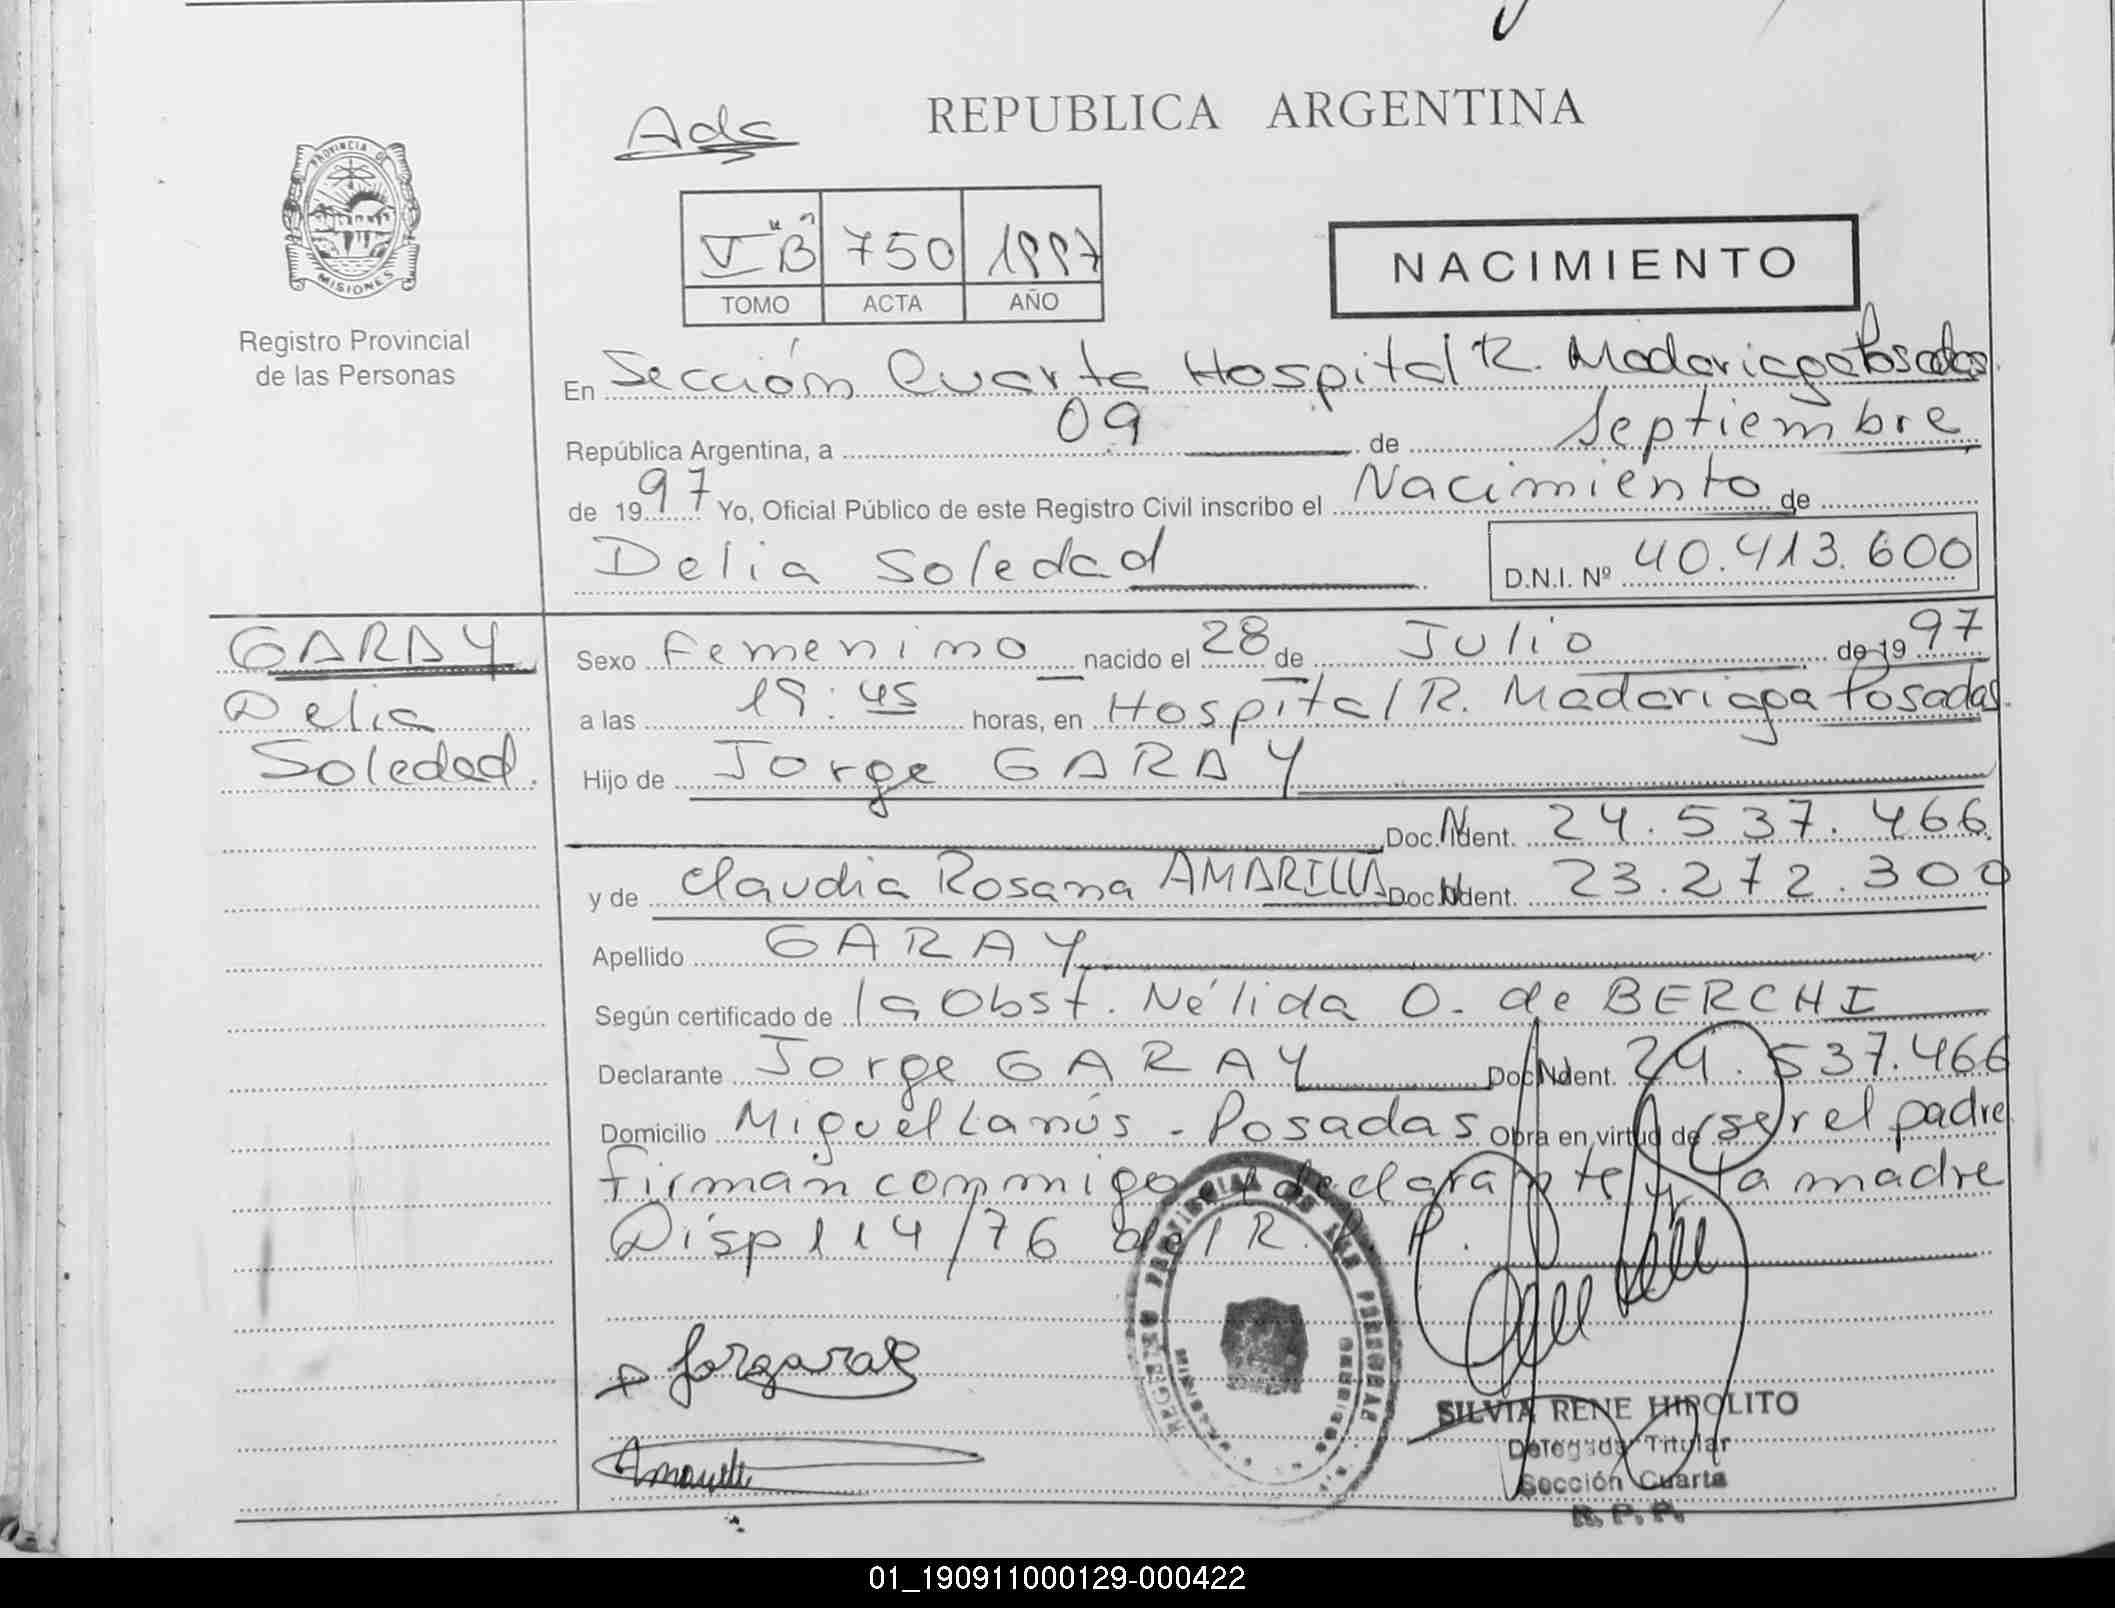 REPUBLICA ARGENTINA
Ads
PROVINCIA DE
MISIONES
V "B" 750 1997
TOMO ACTA AÑO
NACIMIENTO
Registro Provincial
de las Personas
En Sección Cuarta Hospital R. Madariaga Posadas
República Argentina, a 09 de Septiembre
de 1997 Yo, Oficial Público de este Registro Civil inscribo el Nacimiento de
Delia Soledad D.N.I. Nº 40.413.600
GARAY
Delia
Soledad.
Sexo Femenino nacido el 28 de Julio de 1997
a las 19:45 horas, en Hospital R. Madariaga Posadas
Hijo de Jorge GARAY
Doc. Ident. 24.537.466
y de Claudia Rosana AMARILLA Doc. Ident. 23.272.300
Apellido GARAY
Según certificado de la Obst. Nélida O. de BERCHI
Declarante Jorge GARAY Doc. Ident. 24.537.466
Domicilio Miguel Lanús - Posadas Obra en virtud de ser el padre
firman conmigo el declarante y la madre
Disp 114/76 del R. P. P.
SILVIA RENE HIPOLITO
Delegada Titular
Sección Cuarta
R. P. P.
01_190911000129-000422